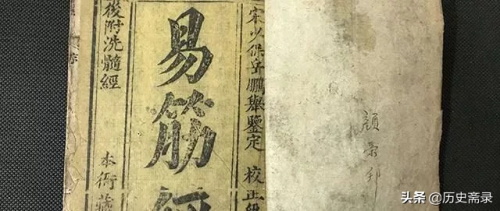 宋少保岳鵬舉鑒定 校正
易筋經
後附洗髓經
本衙藏
头条 @历史斋录